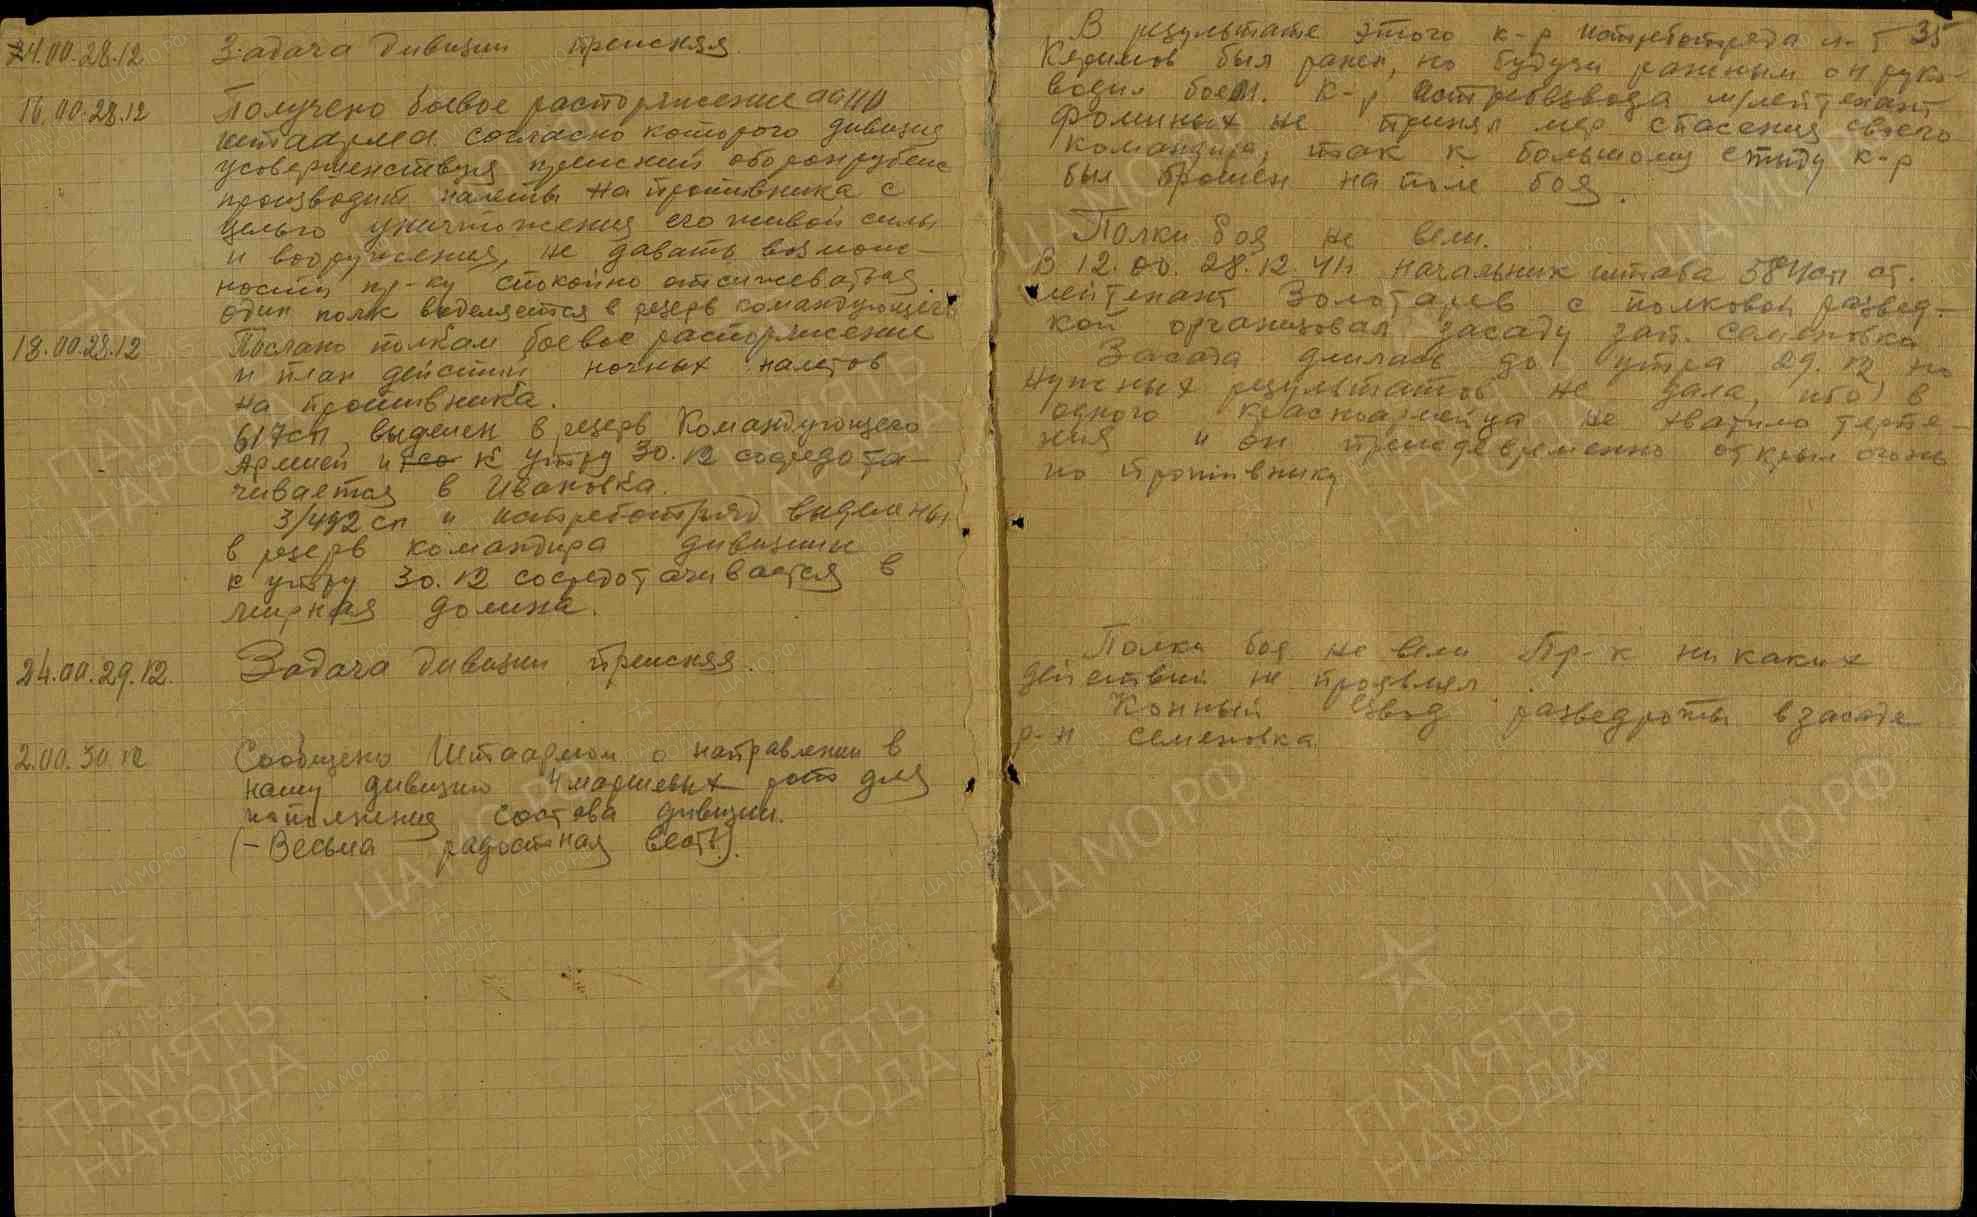 24.00.28.12 Задача дивизии прежняя.
16.00.28.12 Получено боевое распоряжение
штаарма согласно которого дивизия
усовершенствуя прежний оборонрубеж
производит налеты на противника с
целью уничтожения его живой силы
и вооружения, не давать возмож-
ности пр-ку спокойно отсиживаться.
один полк выделяется в резерв командующего
18.00.28.12 Послано полкам боевое распоряжение
и план действий ночных налетов
на противника.
617сп, выделен в резерв Командующего
Армией и к утру 30.12 сосредота-
чивается в Ивановка.
3/492 сп и истреботряд выделены
в резерв командира дивизии
к утру 30.12 сосредотачивается в
мирная долина.
24.00.29.12. Задача дивизии прежняя.
2.00.30.12 Сообщено Штаармом о направлении в
нашу дивизию 4 маршевых рот для
пополнения состава дивизии.
(-Весьма радостная весть).
35
В результате этого к-р истреботряда л-т
Керимов был ранен, но будучи раненым он руко-
водил боем. К-р истребвзвода м/лейтенант
Фоминых не принял мер спасения своего
командира, так к большому стыду к-р
был брошен на поле боя.
Полки боя не вели.
В 12.00. 28.12.41г начальник штаба 584сп ст.
лейтенант Золотарев с полковой развед-
кой организовал засаду зап. Семеновка
Засада длилась до утра 29.12 но
нужных результатов не дала, ибо в
одного красноармейца не хватило терпе-
ния и он преждевременно открыл огонь
по противнику
Полки боя не вели Пр-к никаких
действий не проявлял.
Конный взвод разведроты в засаде
р-н Семеновка.
ПАМЯТЬ
НАРОДА
1941-1945
ЦАМО.РФ